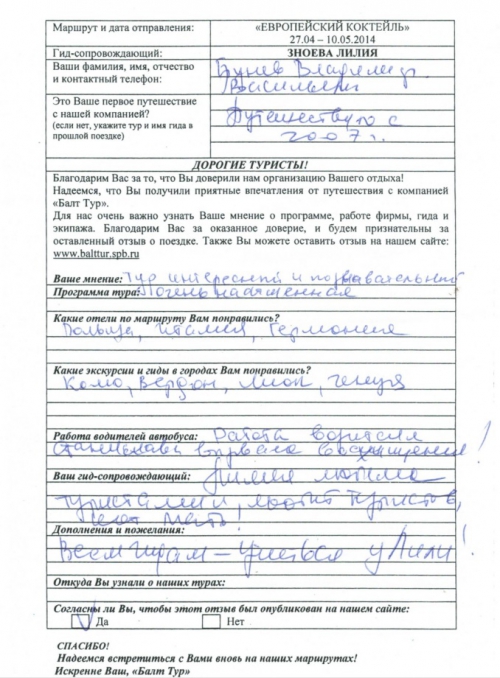 Маршрут и дата отправления: «ЕВРОПЕЙСКИЙ КОКТЕЙЛЬ»
27.04 – 10.05.2014
Гид-сопровождающий: ЗНОЕВА ЛИЛИЯ
Ваши фамилия, имя, отчество
и контактный телефон:
Владимир
Васильевич
Это Ваше первое путешествие
с нашей компанией?
(если нет, укажите тур и имя гида в
прошлой поездке)
Путешествую с
2007 г.
ДОРОГИЕ ТУРИСТЫ!
Благодарим Вас за то, что Вы доверили нам организацию Вашего отдыха!
Надеемся, что Вы получили приятные впечатления от путешествия с компанией
«Балт Тур».
Для нас очень важно узнать Ваше мнение о программе, работе фирмы, гида и
экипажа. Благодарим Вас за оказанное доверие, и будем признательны за
оставленный отзыв о поездке. Также Вы можете оставить отзыв на нашем сайте:
www.balttur.spb.ru
Ваше мнение: Тур интересный и познавательный
Программа тура: очень насыщенная
Какие отели по маршруту Вам понравились?
Польша, Италия, Германия
Какие экскурсии и гиды в городах Вам понравились?
Комо, Вердон, Лион, Генуя
Работа водителей автобуса: Работа водителя
Станислава восхищение!
Ваш гид-сопровождающий: Лилия любима
туристами и любит туристов,
Дополнения и пожелания:
Всем гидам – учиться у Лили!
Откуда Вы узнали о наших турах:
Согласны ли Вы, чтобы этот отзыв был опубликован на нашем сайте:
Да Нет
СПАСИБО!
Надеемся встретиться с Вами вновь на наших маршрутах!
Искренне Ваш, «Балт Тур»